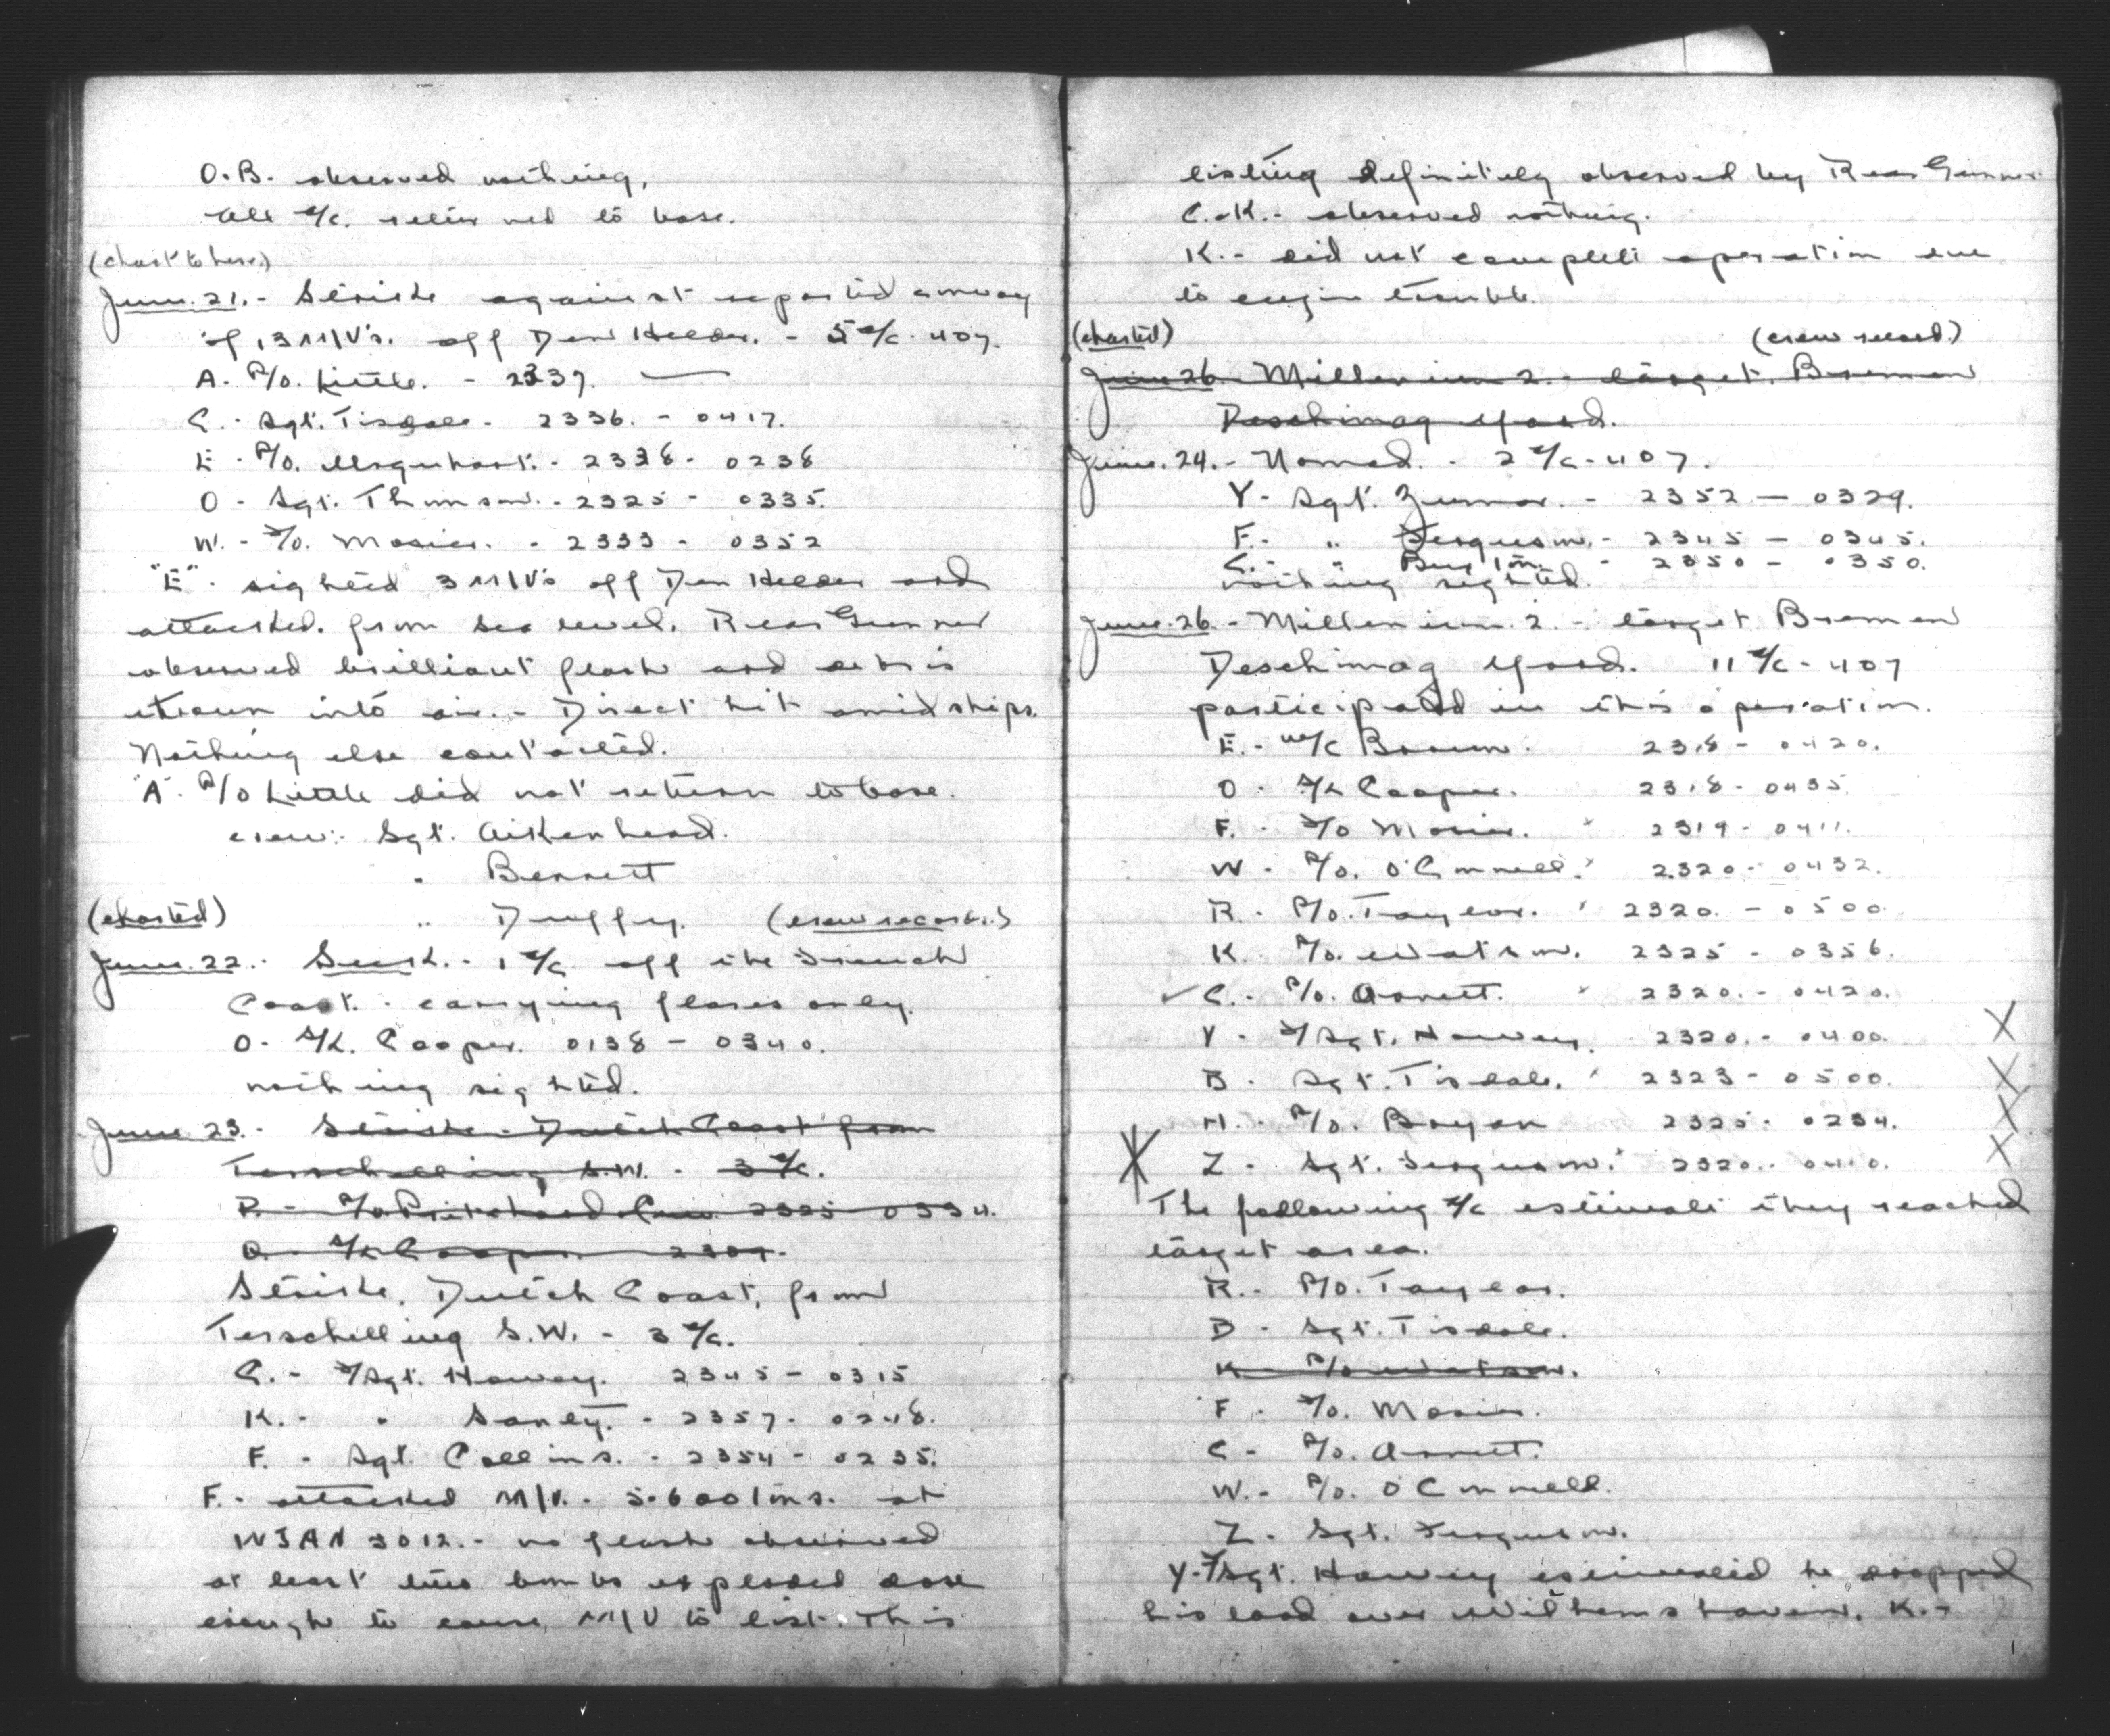 O.B. observed nothing,
All a/c. returned to base.
(chart to here)
June. 21. - Strike against reported convoy
of 13 M/V's. off Den Helder. - 5 a/c. 407.
A. P/O. Little. - 2337. —
C. - Sgt. Tisdale. - 2336. - 0417.
E - P/O. Urquhart. - 2338 - 0238
O - Sgt. Thomson. - 2325 - 0335.
W. - F/O. Mosier. - 2333 - 0352
"E" - sighted 3 M/V's off Den Helder and
attacked. from sea level. Rear Gunner
observed brilliant flash and debris
thrown into air. - Direct hit amidships.
Nothing else contacted.
"A" - P/O Little did not return to base.
crew:- Sgt. Aikenhead.
" Bennett
(charted) " Duffy. (crew record.)
June. 22. - Search. - 1 a/c off the French
Coast. - carrying flares only.
O - S/L. Cooper. 0138 - 0340.
nothing sighted.
June 23. - Strike - Dutch Coast from
Terschelling S.W. - 3 a/c.
R. - P/O Pritchard 2325 0334.
O. - S/L Cooper. 2309.
Strike, Dutch Coast, from
Terschelling S.W. - 3 a/c.
C. - F/Sgt. Howey. 2345 - 0315
K. - " Santy. - 2357 - 0248.
F. - Sgt. Collins. - 2354 - 0235.
F. - attacked M/V. - 5-6000 tons. at
WJAN 3012. - no flash observed
at least two bombs exploded close
enough to cause M/V to list. This
listing definitely observed by Rear Gunner.
C. & K. - observed nothing.
K. - did not complete operation due
to engine trouble.
(charted) (crew record.)
June 26. Millenium 2. - target. Bremen
Deschimag Yard.
June. 24. - Nomad. - 2 a/c - 407.
Y - Sgt. Zumar. - 2352 — 0329.
F. - " Ferguson. - 2345 — 0345.
C. - " Burton. - 2350 - 0350.
nothing sighted.
June. 26. - Millenium. 2. - target Bremen
Deschimag Yard. 11 a/c - 407
participated in this operation.
E. - W/C Brown. 2318 - 0420.
O - S/L Cooper. 2318 - 0435
F. - F/O Mosier. 2319 - 0411.
W - P/O. O'Connell. 2320 - 0432.
R. - P/O. Tayler. 2320. - 0500
K. P/O. Watson. 2325 - 0356.
✓ C. - P/O. Arnett. 2320. - 0420.
Y - F/Sgt. Howey. 2320. - 0400. X
B - Sgt. Tisdale. 2323 - 0500. X
H. - P/O. Bryan 2325 - 0234. X
Z - Sgt. Ferguson. 2320. - 0410. X
The following a/c estimate they reached
target area.
R. - P/O. Tayler.
B - Sgt. Tisdale.
K - P/O Watson.
F - F/O. Mosier.
C - P/O. Arnett.
W. - P/O. O'Connell.
Z - Sgt. Ferguson.
Y - F/Sgt. Howey estimated he dropped
his load over Wilhemshaven. K. -